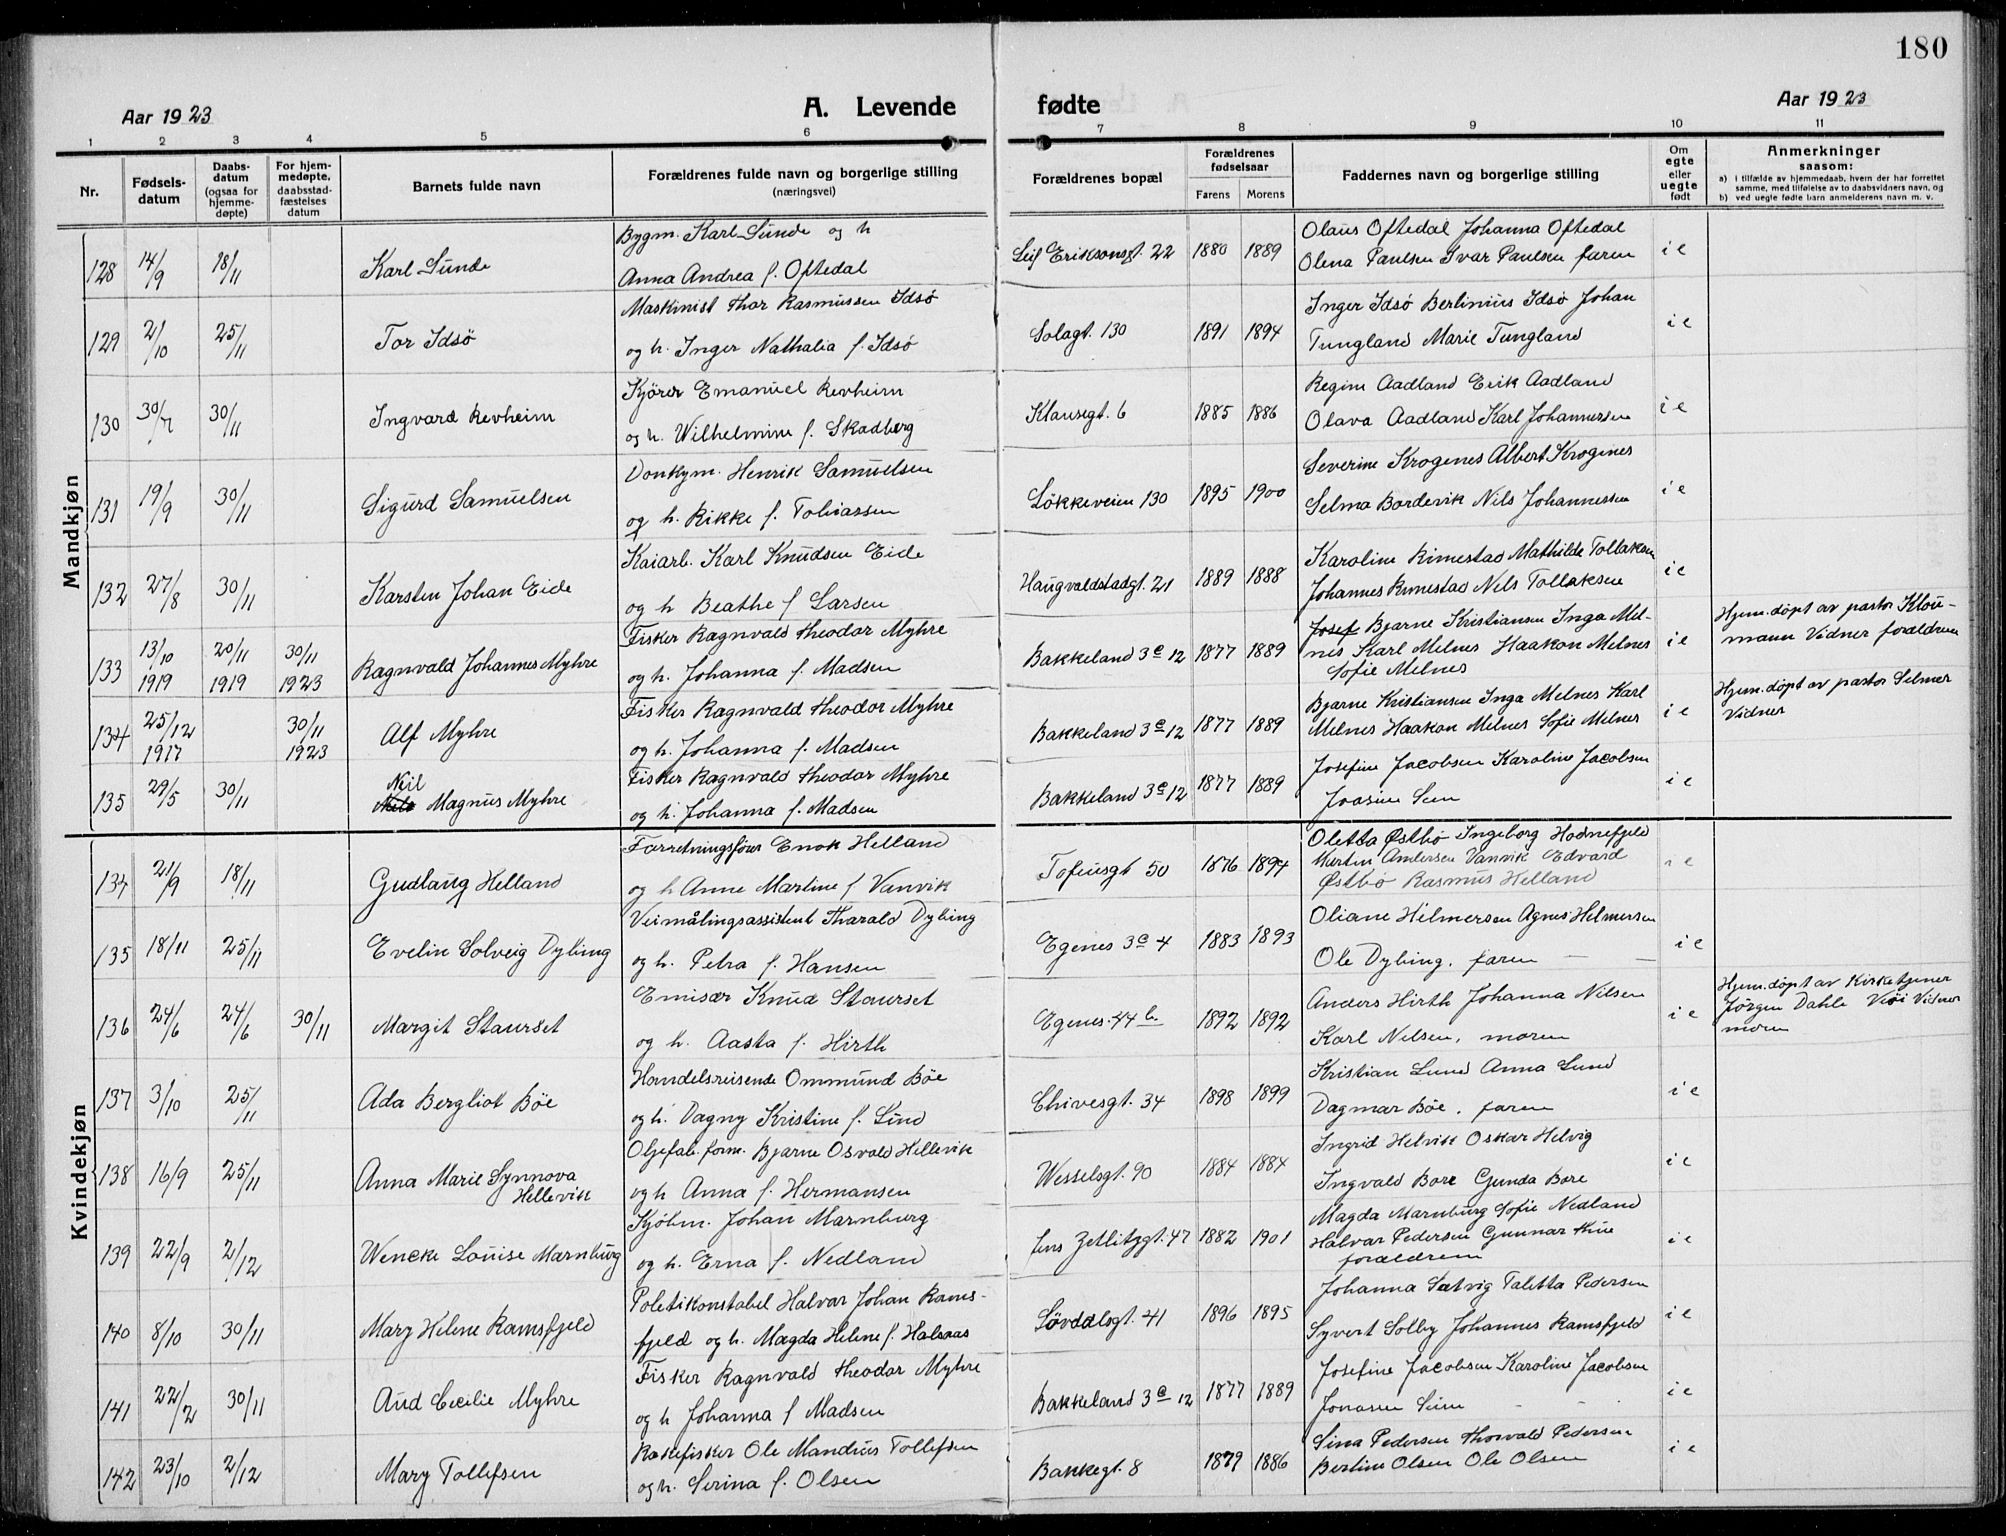 180
Aar 1923
A. Levende fødte
Aar 1923
1 2 3 4 5 6 7 8 9 10 11
Nr.
Fødsels-
datum
Daabs-
datum
(ogsaa for
hjemme-
døpte)
For hjem-
medøpte,
daabsstad-
fæstelses
datum
Barnets fulde navn
Forældrenes fulde navn og borgerlige stilling
(næringsvei)
Forældrenes bopæl
Forældrenes
fødselsaar
Farens Morens
Faddernes navn og borgerlige stilling
Om
egte
eller
uegte
født
Anmerkninger
saasom:
a) i tilfælde av hjemmedaab, hvem der har forrettet
samme, med tilføielse av to daabsvidners navn, og
b) ved uegte fødte barn anmelderens navn m. v.
Mandkjøn
128 14/9 18/11 Karl Sunde
Bygm. Karl Sunde og h
Anna Andrea f. Oftedal
Leif Eriksonsgt. 22 1880 1889
Olaus Oftedal Johanna Oftedal
Olena Paulsen Ivar Paulsen faren
i e
129 2/10 25/11 Tor Idsø
Maskinist Thor Rasmussen Idsø
og h. Inger Nathalia f. Idsø
Solagt. 130 1891 1894
Inger Idsø Berlinius Idsø Johan
Tungland Marie Tungland
i e
130 30/7 30/11 Ingvard Revheim
Kjører Emanuel Revheim
og h. Wilhelmine f. Skadberg
Klausegt. 6 1885 1886
Regine Aadland Erik Aadland
Olava Aadland Karl Johannessen
i e
131 19/9 30/11 Sigurd Samuelsen
Donkym. Henrik Samuelsen
og h. Rikke f. Tobiassen
Løkkeveien 130 1895 1900
Severine Krogenes Albert Krogenes
Selma Bordevik Nils Johannessen
i e
132 27/8 30/11 Karsten Johan Eide
Kaiarb. Karl Knudsen Eide
og h Beathe f Larsen
Haugvaldstadgt. 21 1889 1888
Karoline Rimestad Mathilde Tollaksen
Johannes Rimestad Nils Tollaksen
i e
133 13/10 1919 20/11 1919 30/11 1923 Ragnvald Johannes Myhre
Fisker Ragnvald Theodor Myhre
og h. Johanna f. Madsen
Bakkeland 3e 12 1877 1889
Josef Bjarne Kristiansen Inga Mel-
nes Karl Melnes Haakon Melnes
Sofie Melnes
i e
Hjem.døpt av pastor Klou-
mann Vidner forældrene
134 25/12 1917 30/11 1923 Alf Myhre
Fisker Ragnvald Theodor Myhre
og h. Johanna f. Madsen
Bakkeland 3e 12 1877 1889
Bjarne Kristiansen Inga Melnes Karl
Melnes Haakon Melnes Sofie Melnes
i e
Hjem.døpt av pastor Selmer
Vidner
135 29/5 30/11 Neil
Nils Magnus Myhre
Fisker Ragnvald Theodor Myhre
og h. Johanna f. Madsen
Bakkeland 3e 12 1877 1889
Josefine Jacobsen Karoline Jacobsen
i e
Kvindekjøn
134 21/9 18/11 Gudlaug Helland
Forretningsfører Enok Helland
og h Anne Martine f Vanvik
Tofteusgt 50 1876 1894
Oletta Østbø Ingeborg Hodnefjeld
Martin Andersen Vanvik Edvard
Østbø Rasmus Helland
i e
135 18/11 25/11 Evelin Solveig Dybing
Veimålingsassistent Tharald Dybing
og h. Petra f. Hansen
Egenes 3e 4 1883 1893
Oliane Helmersen Agnes Helmersen
Ole Dybing. faren
i e
136 24/6 24/6 30/11 Margit Staurset
Emisær Knud Staurset
og h. Aasta f. Hirth
Egenes 44 b. 1892 1892
Anders Hirth Johanna Nilsen
Karl Nilsen, moren
i e
Hjem.døpt av Kirketjener
Jørgen Dahle Vidner
moren
137 3/10 25/11 Ada Bergliot Bøe
Handelsreisende Ommund Bøe
og h. Dagny Kristine f. Lund
Chivesgt. 34 1898 1899
Kristian Lund Anna Lund
Dagmar Bøe, faren
i e
138 16/9 25/11 Anna Marie Synnova
Hellevik
Oljefab. form. Bjarne Osvald Hellevik
og h Anna f. Hermansen
Wesselsgt. 90 1884 1884
Ingrid Helvik Oskar Helvig
Ingvald Bore Gunda Bore
i e
139 22/9 2/12 Wencke Louise Marnburg
Kjøbm. Johan Marnburg
og h. Erna f. Nedland
Jens Zetlitzgt. 47 1882 1901
Magda Marnburg Sofie Nedland
Halvar Pedersen Gunnar Thue
forældrene
i e
140 8/10 30/11 Mary Helene Ramsfjeld
Politikonstabel Halvar Johan Rams-
fjeld og h. Magda Helene f. Halsaas
Løvdalsgt. 41 1896 1895
Johanna Satvig Taletta Pedersen
Syvert Solby Johannes Ramsfjeld
i e
141 22/2 30/11 Aud Cecilie Myhre
Fisker Ragnvald Theodor Myhre
og h Johanna f Madsen
Bakkeland 3e 12 1877 1889
Josefine Jacobsen Karoline Jacobsen
i e
142 23/10 2/12 Mary Tollefsen
Rækefisker Ole Mandius Tollefsen
og h. Serina f. Olsen
Bakkegt. 8 1879 1886
Sina Pedersen Thorvald Pedersen
Bertine Olsen Ole Olsen
i e